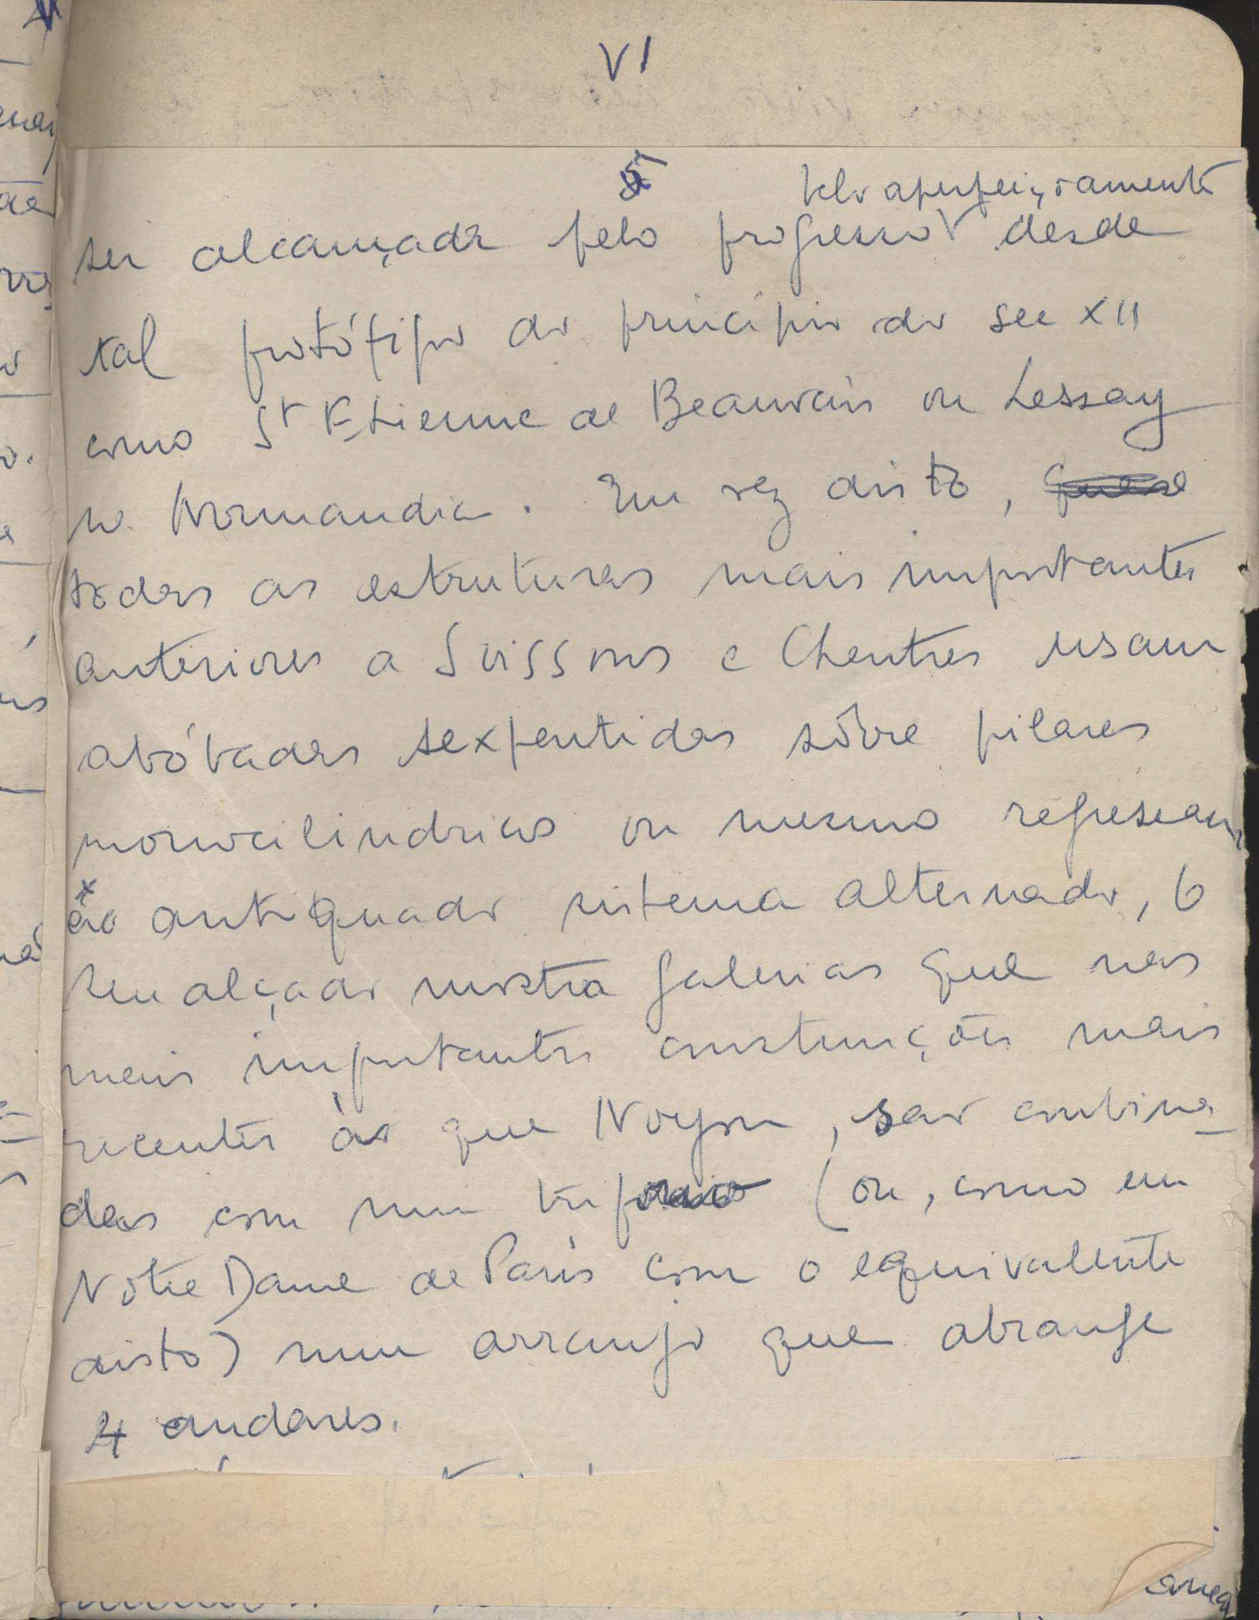 VI
5
pelo aperfeiçoamento
ser alcançada pelo progresso V desde
tal protótipo do princípio do sec XII
como St Etienne de Beauvais ou Lessay
na Normandia. Em vez disto,
todas as estruturas mais importantes
anteriores a Soissons e Chartres usam
abóbadas sexpartidas sôbre pilares
monocilindricos ou mesmo regressam
ao antiquado sistema alternado, o
seu alçado mostra galerias que nas
mais importantes construções mais
recentes às que Noyon, são combina-
das com um triforio (ou, como em
Notre Dame de Paris com o equivalente
disto) num arranjo que abrange
4 andares.